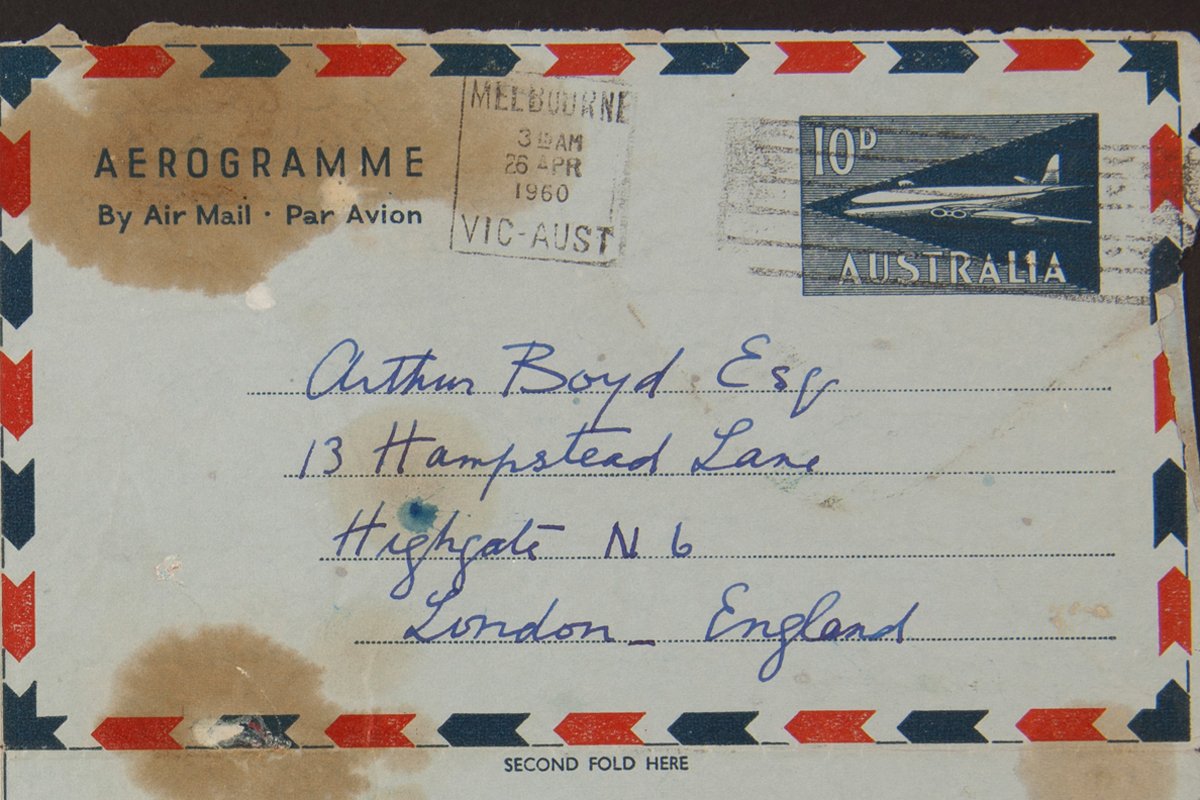 AEROGRAMME
By Air Mail · Par Avion
MELBOURNE
AM
26 APR
1960
VIC-AUST
10D
AUSTRALIA
Arthur Boyd Esq
13 Hampstead Lane
Highgate N 6
London _ England
SECOND FOLD HERE